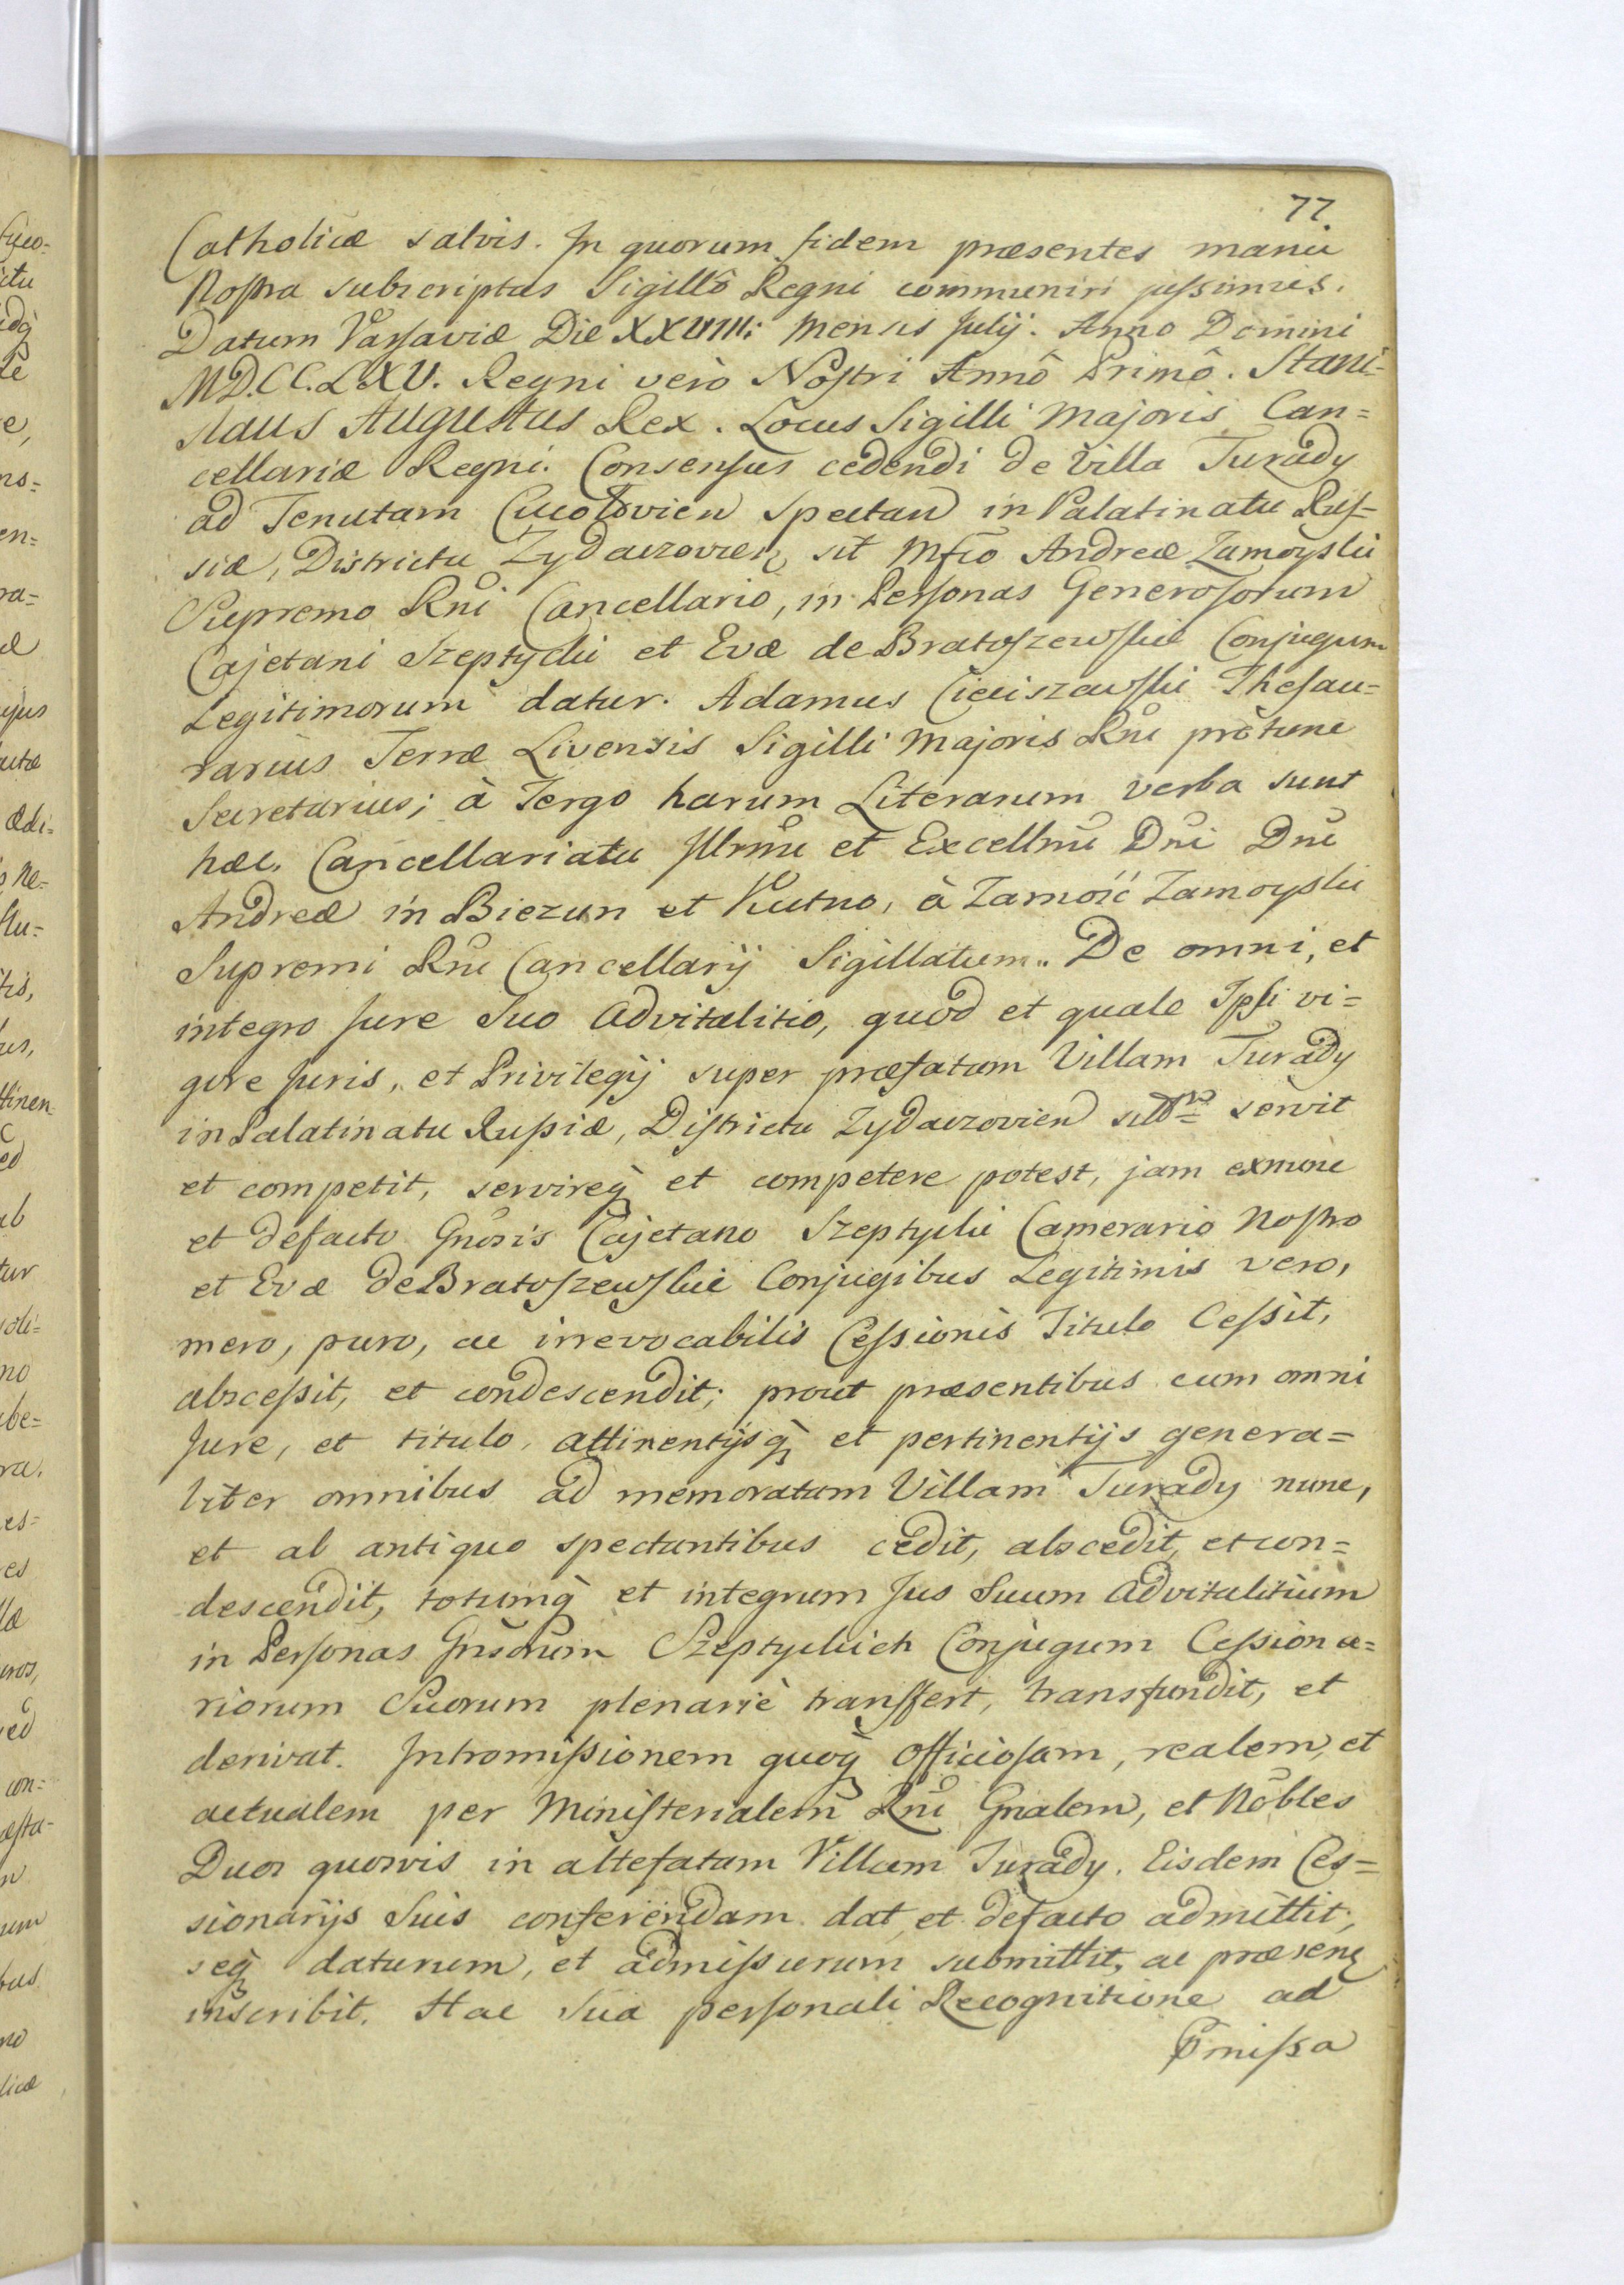 77
Catholicæ salvis. In quorum fidem præsentes manu
Nostra subscriptas Sigillô Regni communiri jussimus.
Datum Varsaviæ Die XXVIIII: Mensis Julij. Anno Domini
MD.CC.LXV. Regni verò Nostri Annô Primô. Stani=
slaus Augustus Rex. Locus Sigilli Majoris Can=
cellariæ Regni. Consensus cedendi de Villa Turady
ad Tenutam Cucołovien spectan in Palatinatu Rus=
siæ, Districtu Zydaczovien, sit Mfco Andreæ Zamoyski
Supremo Rni Cancellario, in Personas Generosorum
Cajetani Szeptycki et Evæ de Bratoszewskie Conjugum
Legitimorum datur. Adamus Cieciszewski Thesau=
rarius Terræ Livensis Sigilli Majoris Rni protunc
Secretarius; à Tergo harum Literarum verba sunt
hæc. Cancellariatu Illrmi et Excellmi Dni Dni
Andreæ in Biezun et Kutno, à Zamość Zamoyski
Supremi Rni Cancellarij Sigillatum.. De omni, et
integro Jure Suo Advitalitio, quod et quale Ipsi vi=
gore Juris, et Privilegij super præfatam Villam Turady
in Palatinatu Russiæ, Districtu Zydaczovien servit
et competit, servireq́ et competere potest, jam exnunc
et defacto Gnosis Cajetano Szeptycki Camerario Nostro
et Evæ deBratoszewskie Conjugibus Legitimis vero,
mero, puro, ac irrevocabilis Cessionis Titulo Cessit,
abscessit, et condescendit; prout præsentibus cum omni
Jure, et titulo, attinentijsq́ et pertinentijs genera=
liter omnibus ad memoratam Villam Turady nunc,
et ab antiquo spectantibus cedit, abscedit, et con=
descendit, totumq́ et integrum Jus Suum Advitalitium
in Personas Gnsorum Szeptyckich Conjugum Cessiona=
riorum Suorum plenariè transfert, transfundit, et
derivat. Intromissionem quoq́ Officiosam, realem, et
actualem per Ministerialem Rni Gnalem, et Nobles
Duos quosvis in attefatam Villam Turady. Eisdem Ces=
sionarijs Suis conferendam dat, et defacto admittit;
seq́ daturum, et admissurum submittit, ac præsen
inscribit. Hac Sua personali Recognitione ad
Pmissa